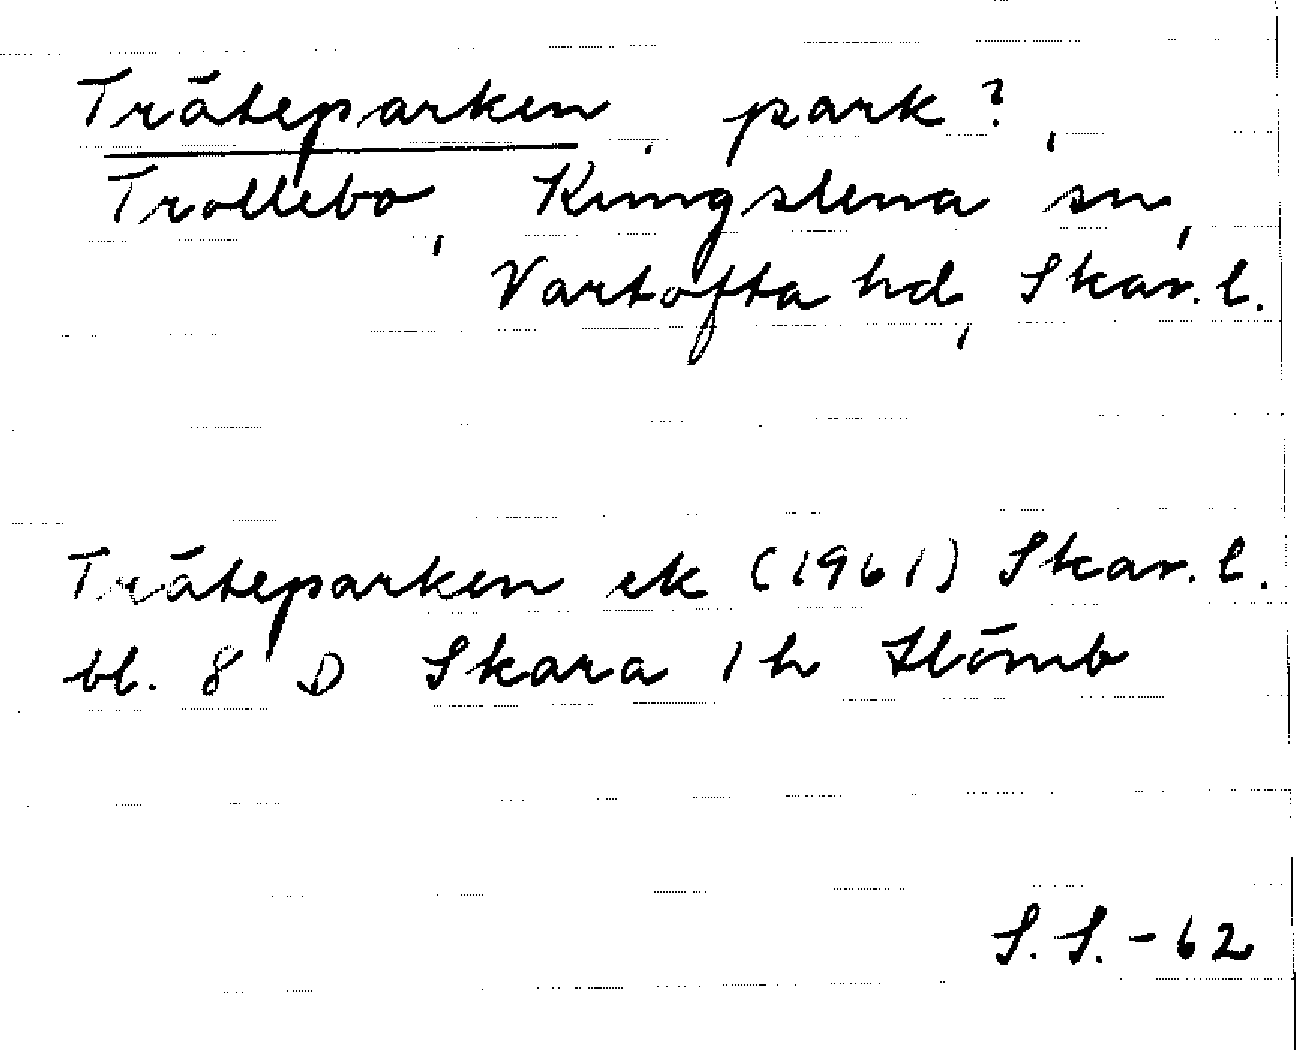 Träteparken, park?,
Trollebo, Kungslena sn,
Vartofta hd, Skar. l.
Träteparken ek (1961) Skar. l.
bl. 8 D Skara 1 h Stömb
S. S. - 62